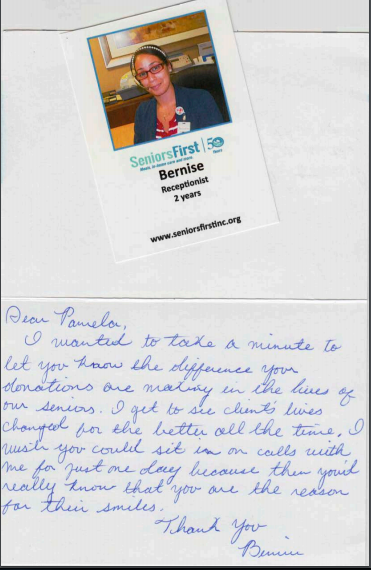 SeniorsFirst | 50 Years
Meals, in-home care and more.
Bernise
Receptionist
2 years
www.seniorsfirstinc.org
Dear Pamela,
I wanted to take a minute to
let you know the difference your
donations are making in the lives of
our seniors. I get to see client's lives
changed for the better all the time. I
wish you could sit in on calls with
me for just one day because then you'd
really know that you are the reason
for their smiles.
Thank You